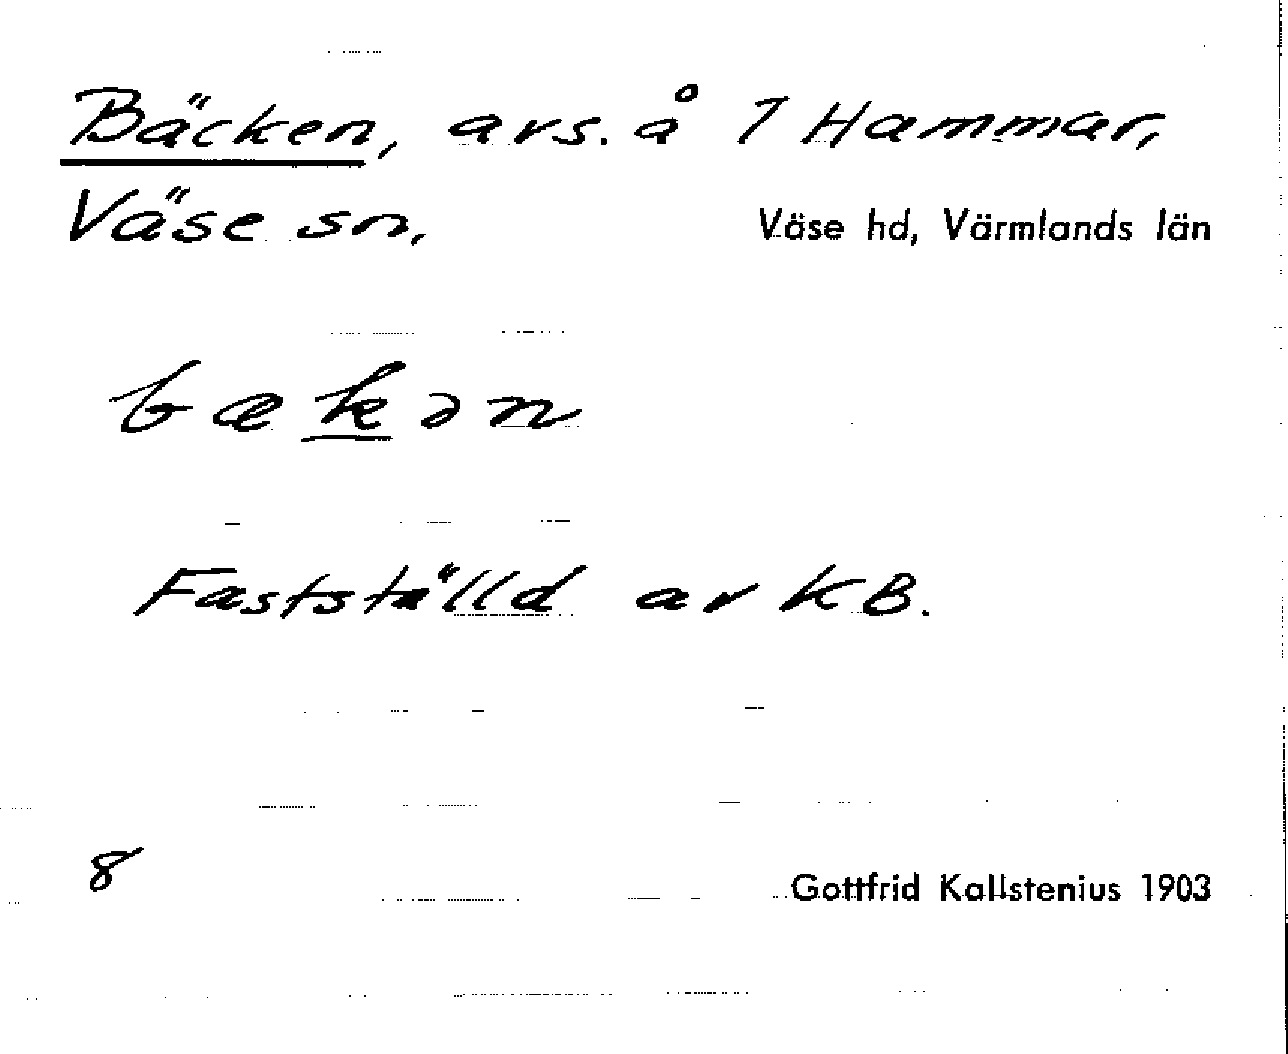 Bäcken, avs. å 1 Hammar,
Väse sn, Väse hd, Värmlands län
bækən
Fastställd av KB.
8 Gottfrid Kallstenius 1903